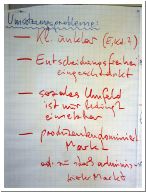 Umsetzungsprobleme:
— Kl. unklar (E, Kd.?)
— Entscheidungsfreiheit
eingeschränkt
— soziales Umfeld
ist nur bedingt
einsehbar
— produzentendominierter
Markt
Markt